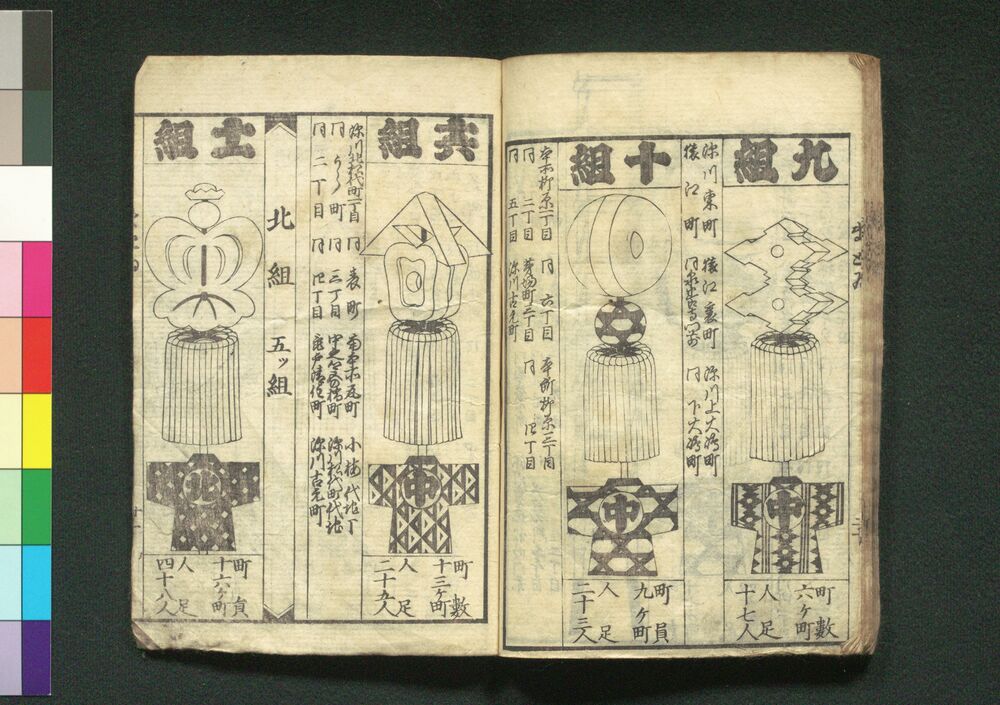 九組
深川東町 猿江裏町 深川上大橋町
猿江町 同 下大橋町
中
町數
六ヶ町
人足
十七人
十組
本所柳原一丁目 同 六丁目 本所柳原三丁目
同 二丁目 茅場町三丁目 同 四丁目
同 五丁目 深川古元町
中
町員
九ヶ町
人足
二十三人
共組
深川北松代町一丁目 同 表町 南本所瓦町 小梅代地丁
同 うら町 同 三丁目 深川松代町代地
同 二丁目 同 四丁目 亀戸清住町 深川古元町
中
町數
十三ヶ町
人足
二十五人
北組 五ッ組
十一組
北
町員
十六ヶ町
人足
四十八人